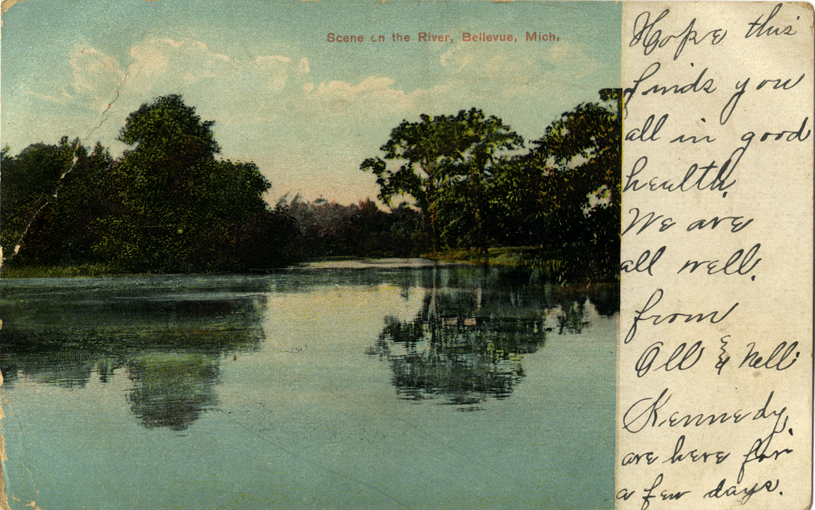 Scene on the River, Bellevue, Mich.
Hope this
finds you
all in good
health.
We are
all well.
from
Oll & Nell
Kennedy,
are here for
a few days.